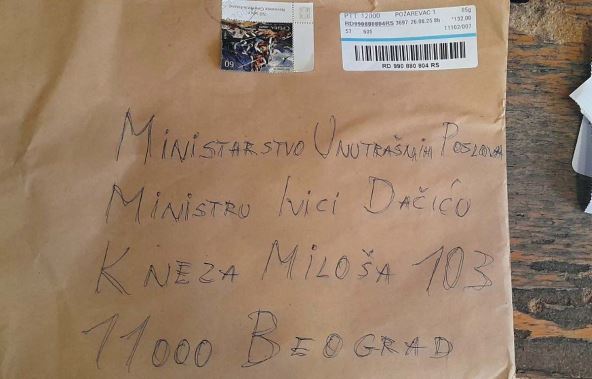 PTT 12000 POŽAREVAC 1. 85g
RD990880804RS 3697 26.08.25 8h *132,00
S7 605 11102/007
RD 990 880 804 RS
60
MINISTARSTVO UNUTRAŠNJIH POSLOVA
MINISTRU IVICI DAČIĆU
KNEZA MILOŠA 103
11000 BEOGRAD